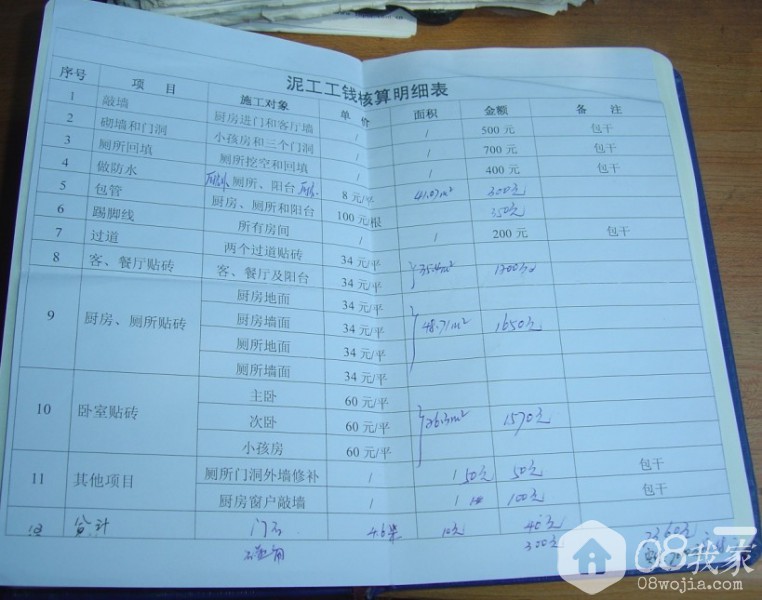 泥工工钱核算明细表
序号 项 目 施工对象 单 价 面积 金额 备 注
1 敲墙 厨房进门和客厅墙 / / 500 元 包干
2 砌墙和门洞 小孩房和三个门洞 / / 700 元 包干
3 厕所回填 厕所挖空和回填 / / 400 元 包干
4 做防水 厕所、阳台 8 元/平 41.07m² 300元
5 包管 厨房、厕所和阳台 100 元/根 350元
6 踢脚线 所有房间 / / 200 元 包干
7 过道 两个过道贴砖 34 元/平
8 客、餐厅贴砖 客、餐厅及阳台 34 元/平 1200元
9 厨房、厕所贴砖 厨房地面 34 元/平
厨房墙面 34 元/平 48.71m² 1650元
厕所地面 34 元/平
厕所墙面 34 元/平
10 卧室贴砖 主卧 60 元/平
次卧 60 元/平 26.3m² 1570元
小孩房 60 元/平
11 其他项目 厕所门洞外墙修补 / / 50元 50元 包干
厨房窗户敲墙 / / 100元 包干
合计 门石 4.6 10元 40元
300元
08我家
08wojia.com